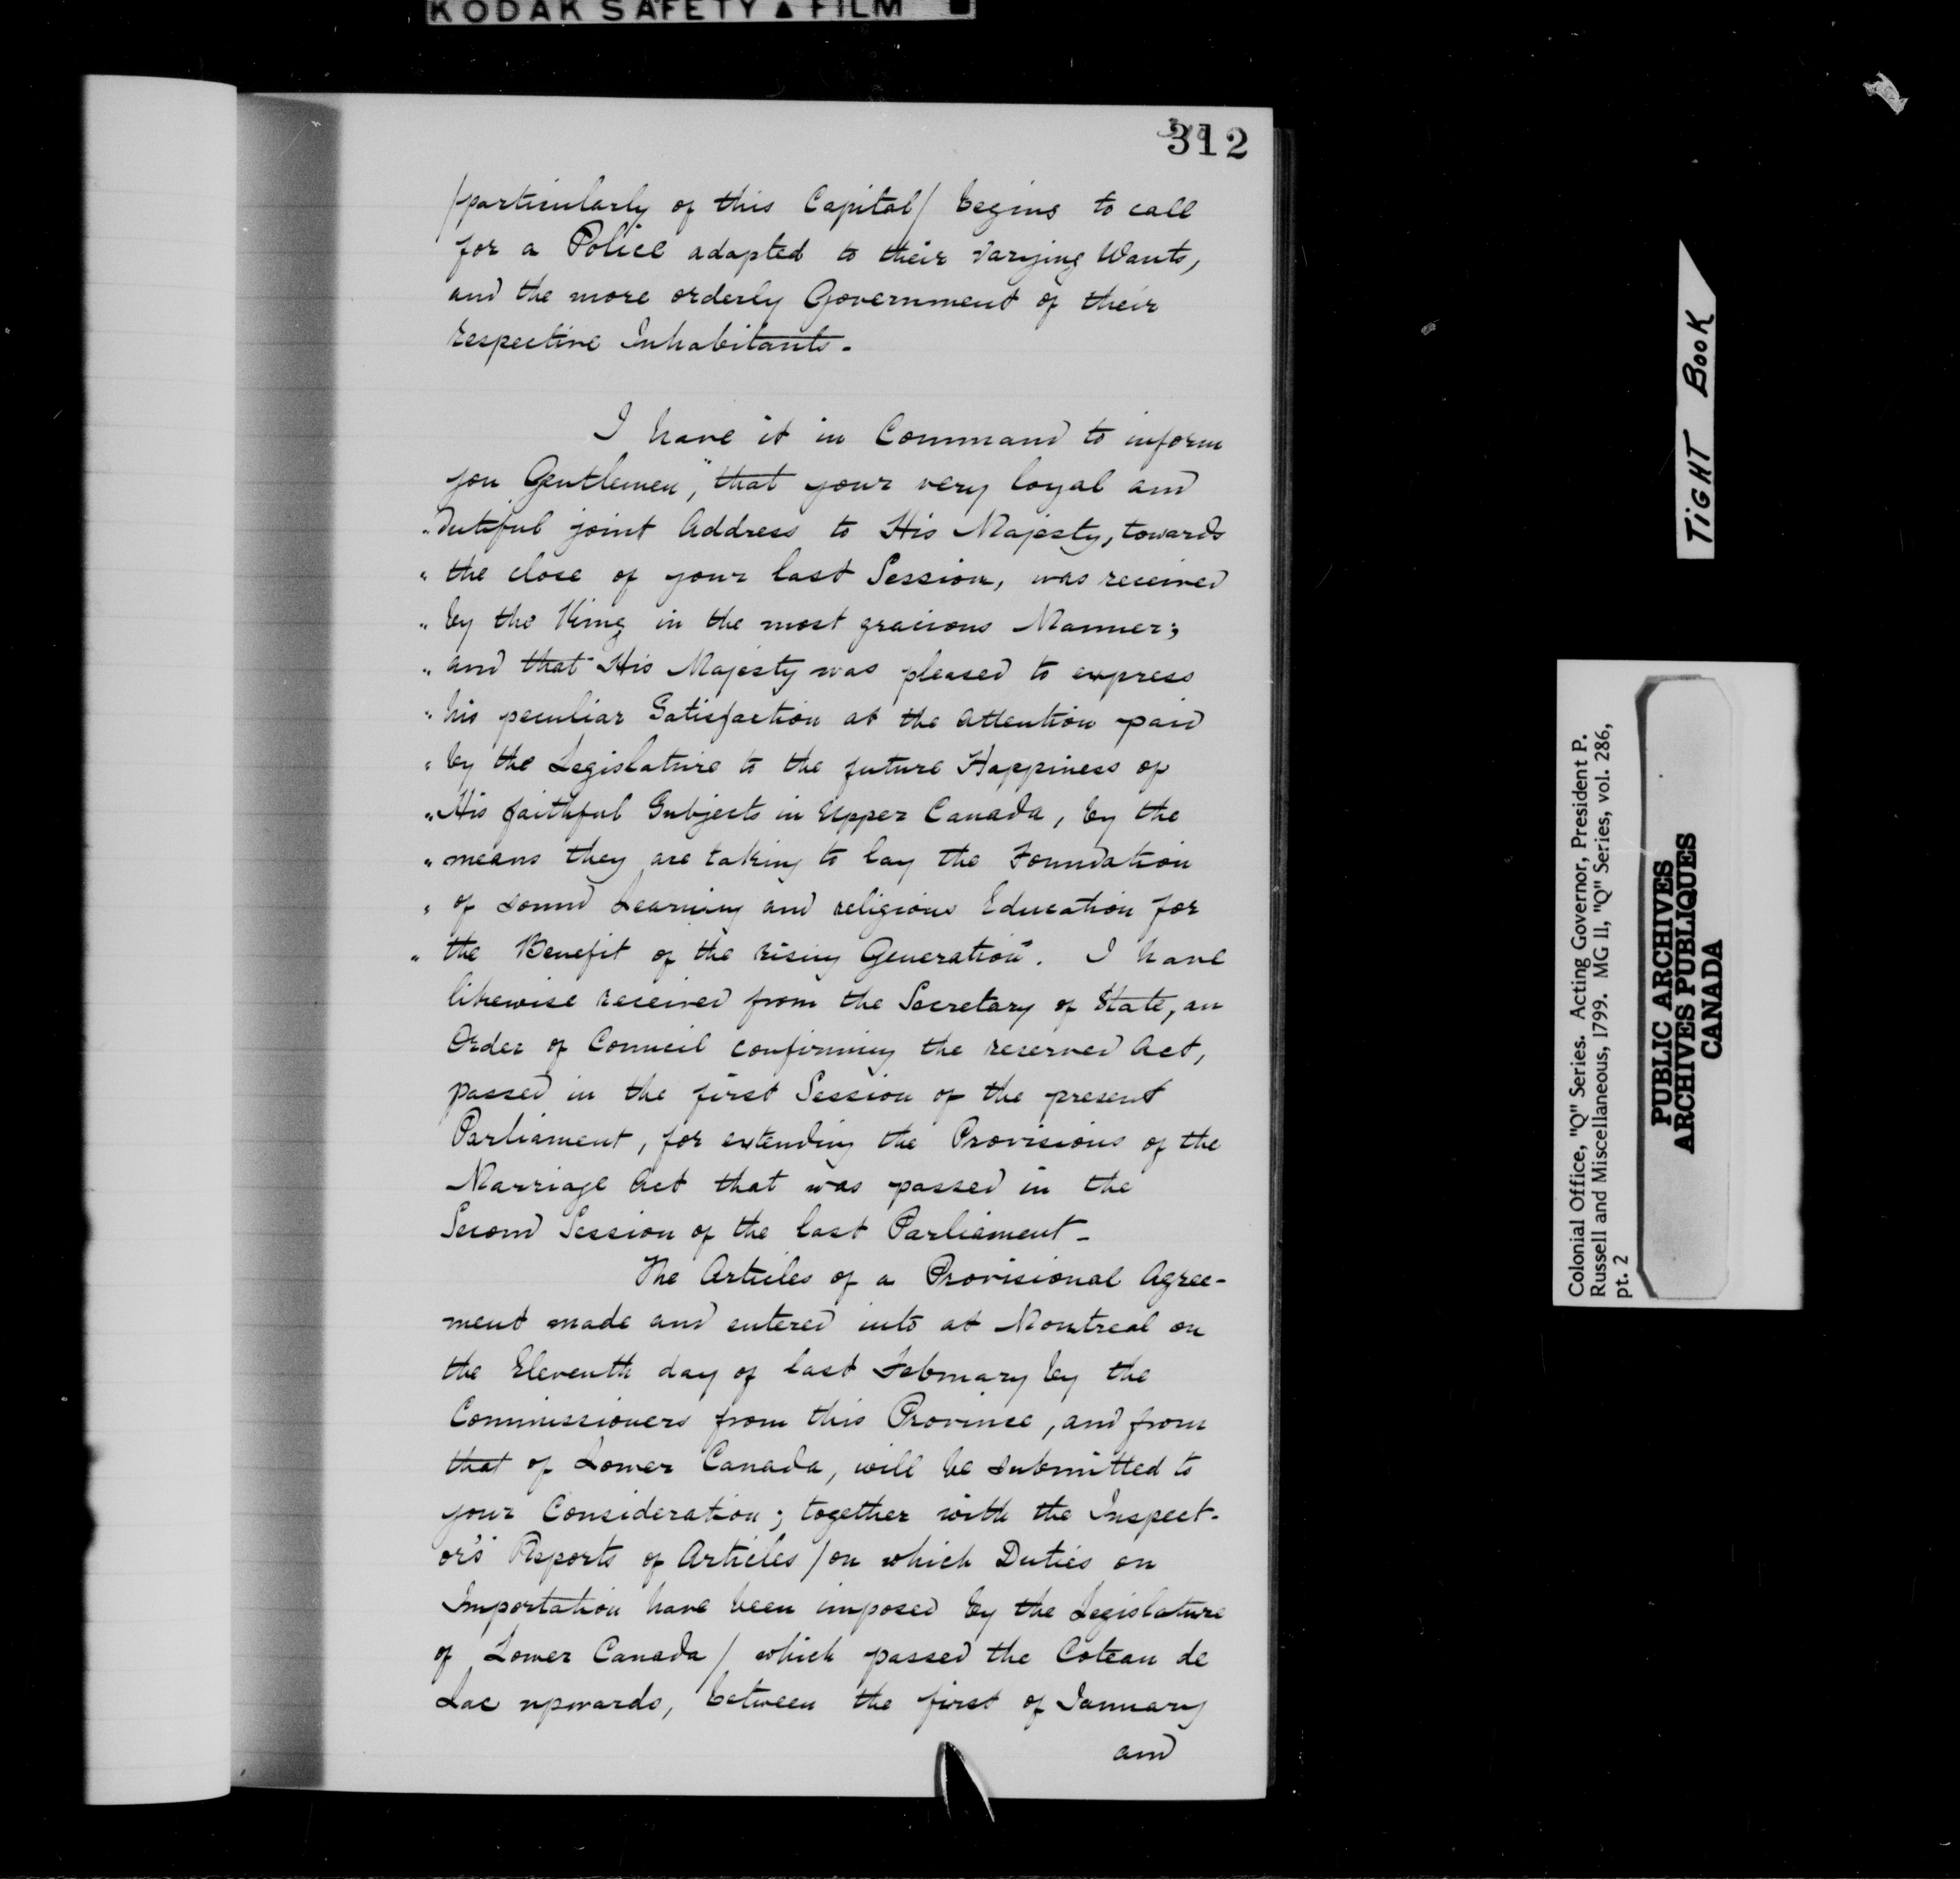 KODAK SAFETY ▲ FILM
312
/particularly of this Capital/ begins to call
for a Police adapted to their varying Wants,
and the more orderly Government of their
respective Inhabitants.
I have it in Command to inform
you Gentlemen, "that your very loyal and
"dutiful joint Address to His Majesty, towards
"the close of your last Session, was received
"by the King in the most gracious Manner;
"and that His Majesty was pleased to express
"his peculiar Satisfaction at the attention paid
"by the Legislature to the future Happiness of
"His faithful Subjects in Upper Canada, by the
"means they are taking to lay the Foundation
"of sound Learning and religious Education for
"the Benefit of the rising Generation". I have
likewise received from the Secretary of State, an
Order of Council confirming the reserved Act,
passed in the first Session of the present
Parliament, for extending the Provisions of the
Marriage Act that was passed in the
Second Session of the last Parliament-
The Articles of a Provisional Agree-
ment made and entered into at Montreal on
the Eleventh day of last February by the
Commissioners from this Province, and from
that of Lower Canada, will be submitted to
your Consideration; together with the Inspect-
or's Reports of Articles /on which Duties on
Importation have been imposed by the Legislature
of Lower Canada/ which passed the Coteau de
Lac upwards, between the first of January
and
TIGHT BOOK
Colonial Office, "Q" Series. Acting Governor, President P.
Russell and Miscellaneous, 1799. MG 11, "Q" Series, vol. 286,
pt. 2
PUBLIC ARCHIVES
ARCHIVES PUBLIQUES
CANADA